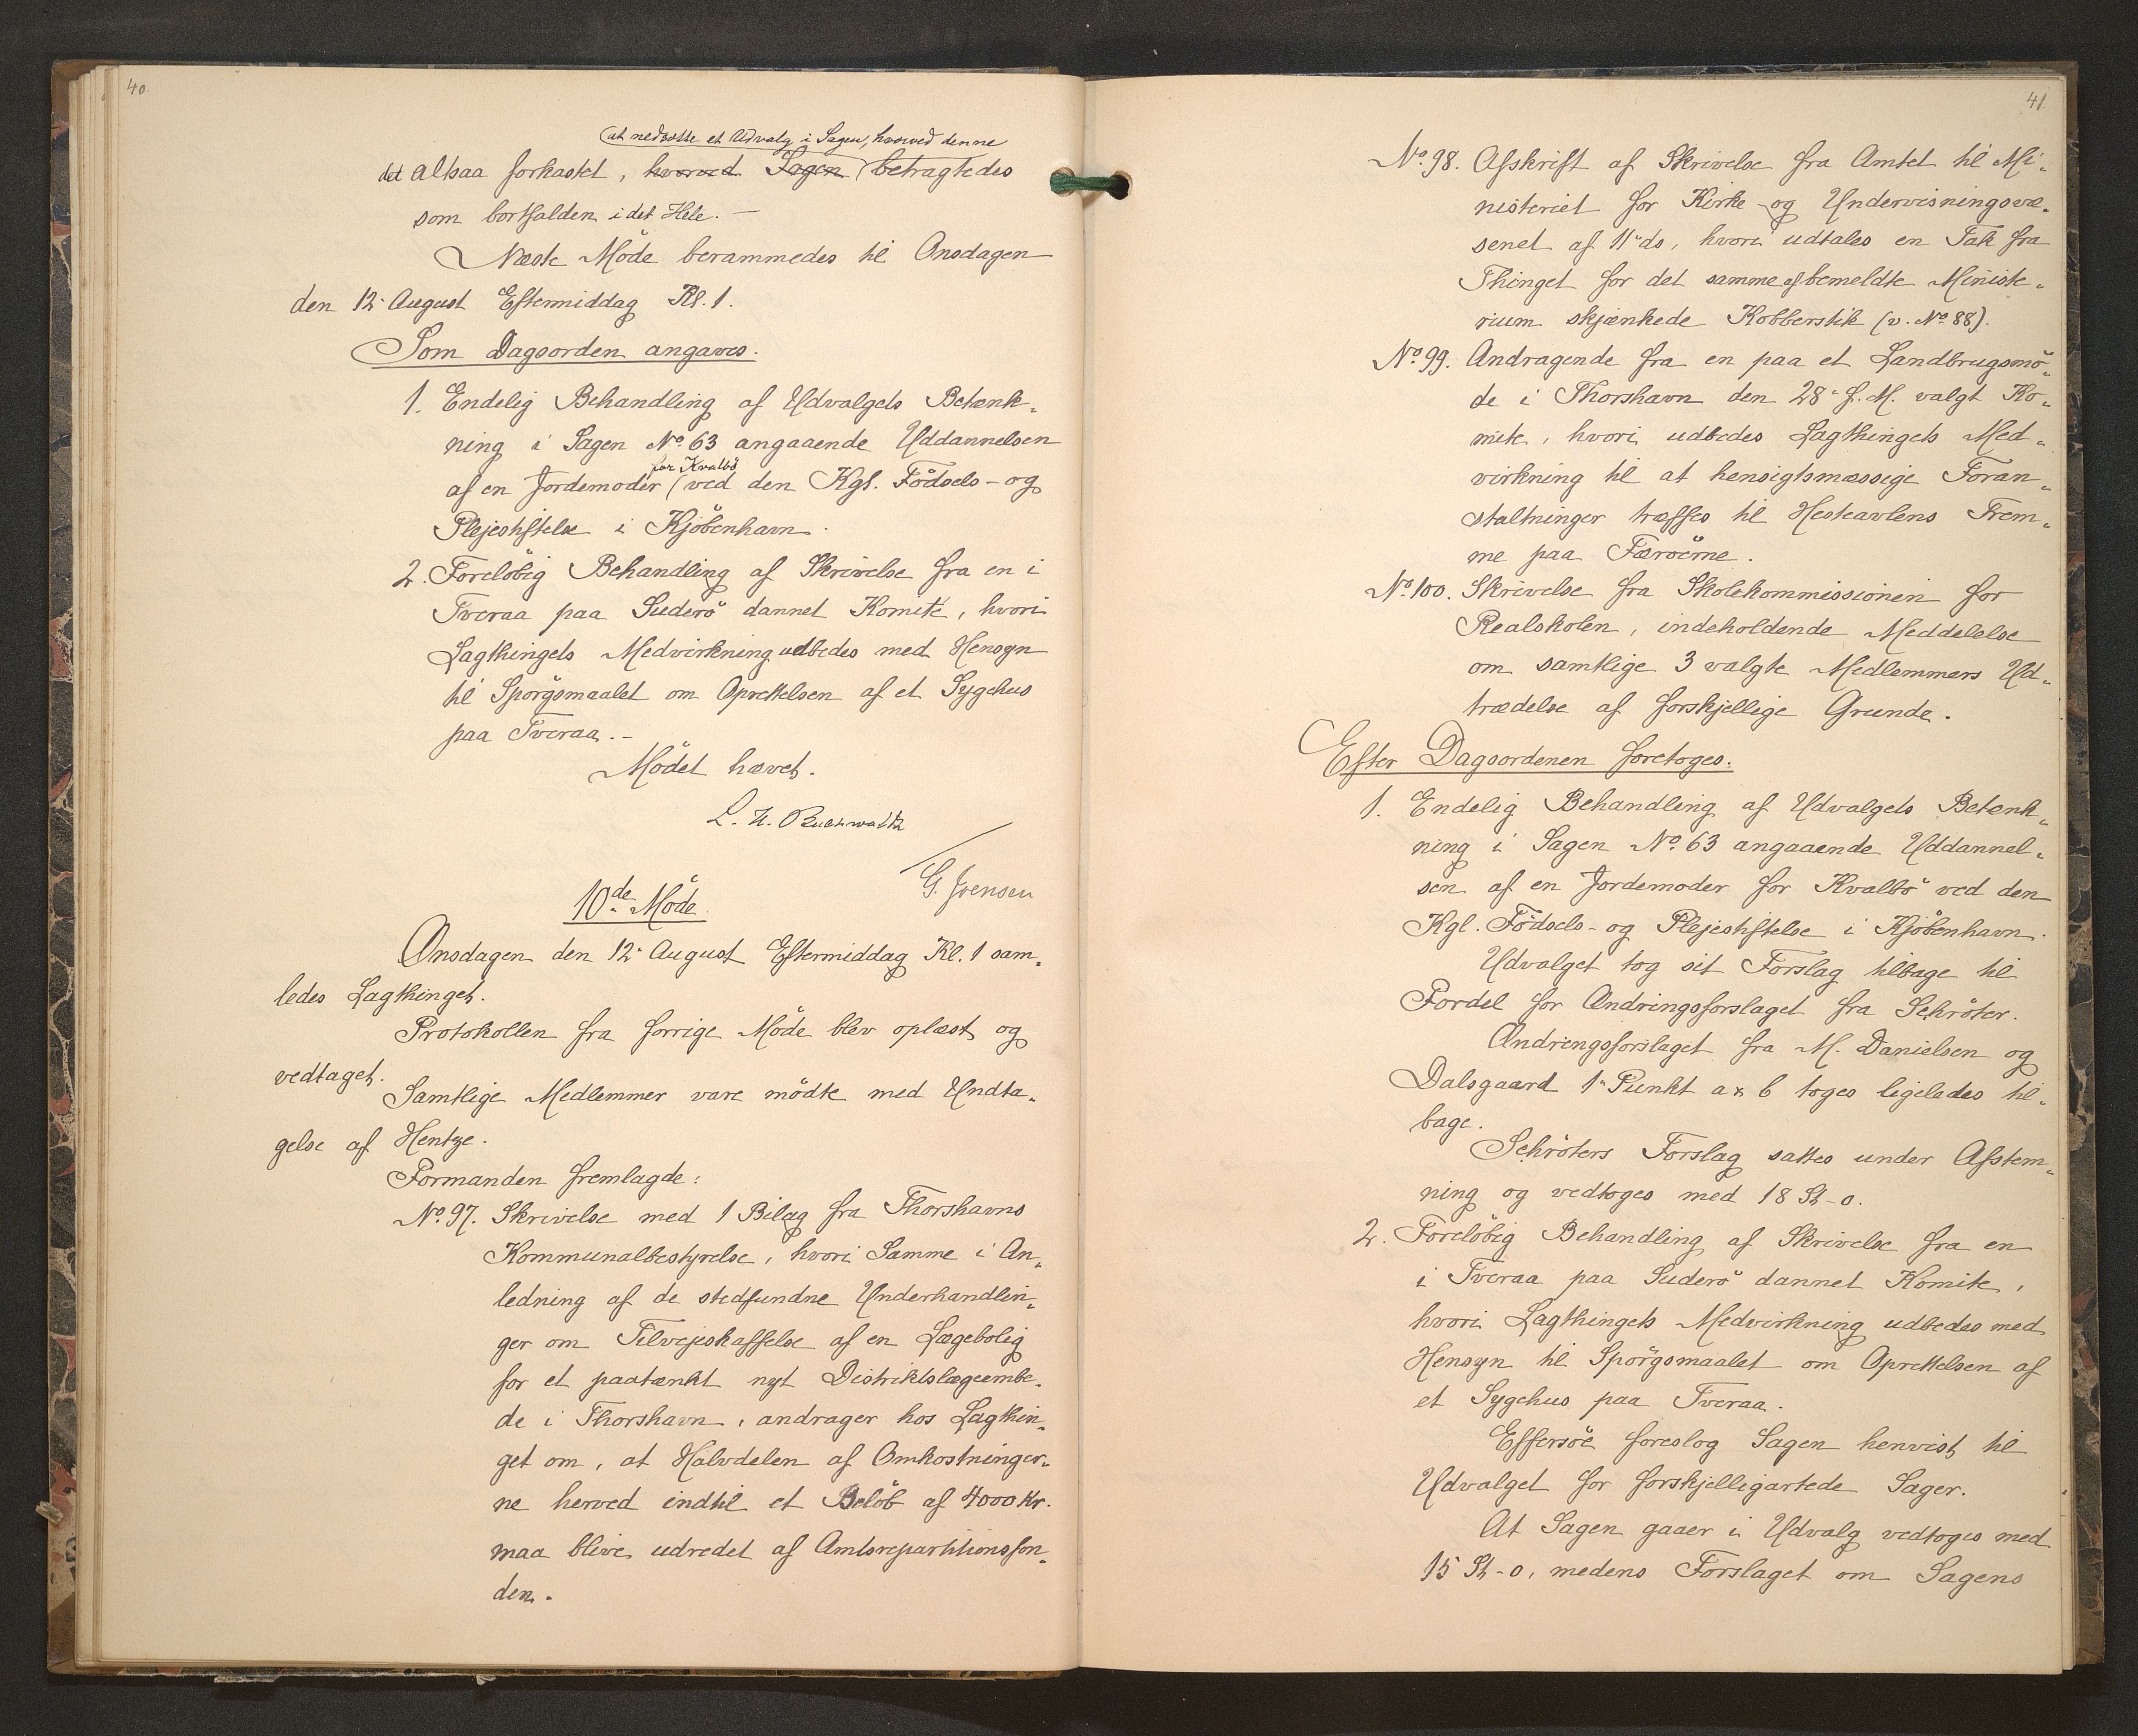 40.
at nedsætte et Udvalg i Sagen, hvorved denne
det altsaa forkastet, hvorved Sagen betragtedes
som bortfalden i det Hele. —
Næste Möde berammedes til Onsdagen
den 12. August Eftermiddag Kl. 1.
Som Dagsorden angaves.
1. Endelig Behandling af Udvalgets Betænk-
ning i Sagen No. 63 angaaende Uddannelsen
for Kvalbö
af en Jordemoder (ved den Kgl. Födsels- og
Plejestiftelse i Kjöbenhavn.
2. Forelöbig Behandling af Skrivelse fra en i
Tveraa paa Suderö dannet Komite, hvori
Lagthingets Medvirkning udbedes med Hensyn
til Spörgsmaalet om Oprettelsen af et Sygehus
paa Tveraa. -
Mödet hævet.
L. H. Buchwaldt
G. Jvensen
10de Möde.
Onsdagen den 12. August Eftermiddag Kl. 1 sam-
ledes Lagthinget.
Protokollen fra forrige Möde blev oplæst og
vedtaget.
Samtlige Medlemmer vare mödte med Undta-
gelse af Hentze.
Formanden fremlagde:
No. 97. Skrivelse med 1 Bilag fra Thorshavns
Kommunalbestyrelse, hvori Samme i An-
ledning af de stedfundne Underhandlin-
ger om Tilvejeskaffelse af en Lægebolig
for et paatænkt nyt Distriktslægeembe-
de i Thorshavn, andrager hos Lagthin-
get om, at Halvdelen af Omkostninger-
ne herved indtil et Belöb af 4000 Kr.
maa blive udredet af Amtsrepartitionsfon-
den.
41.
No. 98. Afskrift af Skrivelse fra Amtet til Mi-
nisteriet for Kirke- og Undervisningsvæ-
senet af 11. ds, hvori udtales en Tak fra
Thinget for det samme af bemeldte Ministe-
rium skjænkede Kobberstik (v. No. 88).
No. 99. Andragende fra en paa et Landbrugsmö-
de i Thorshavn den 28. f. M. valgt Ko-
mite, hvori udbedes Lagthingets Med-
virkning til at hensigtsmæssige Foran-
staltninger træffes til Hesteavlens Frem-
me paa Færöerne.
No. 100. Skrivelse fra Skolekommissionen for
Realskolen, indeholdende Meddelelse
om samtlige 3 valgte Medlemmers Ud-
trædelse af forskjellige Grunde.
Efter Dagsordenen foretoges:
1. Endelig Behandling af Udvalgets Betænk-
ning i Sagen No. 63 angaaende Uddannel-
sen af en Jordemoder for Kvalbö ved den
Kgl. Födsels- og Plejestiftelse i Kjöbenhavn.
Udvalget tog sit Forslag tilbage til
Fordel for Ændringsforslaget fra Schröter.
Ændringsforslaget fra M. Danielsen og
Dalsgaard 1. Punkt a & b toges ligeledes til-
bage.
Schröters Forslag sattes under Afstem-
ning og vedtoges med 18 St - 0.
2. Forelöbig Behandling af Skrivelse fra en
i Tveraa paa Suderö dannet Komite,
hvori Lagthingets Medvirkning udbedes med
Hensyn til Spörgsmaalet om Oprettelsen af
et Sygehus paa Tveraa.
Effersöe foreslog Sagen henvist til
Udvalget for forskjelligartede Sager.
At Sagen gaaer i Udvalg vedtoges med
15 St - 0, medens Forslaget om Sagens